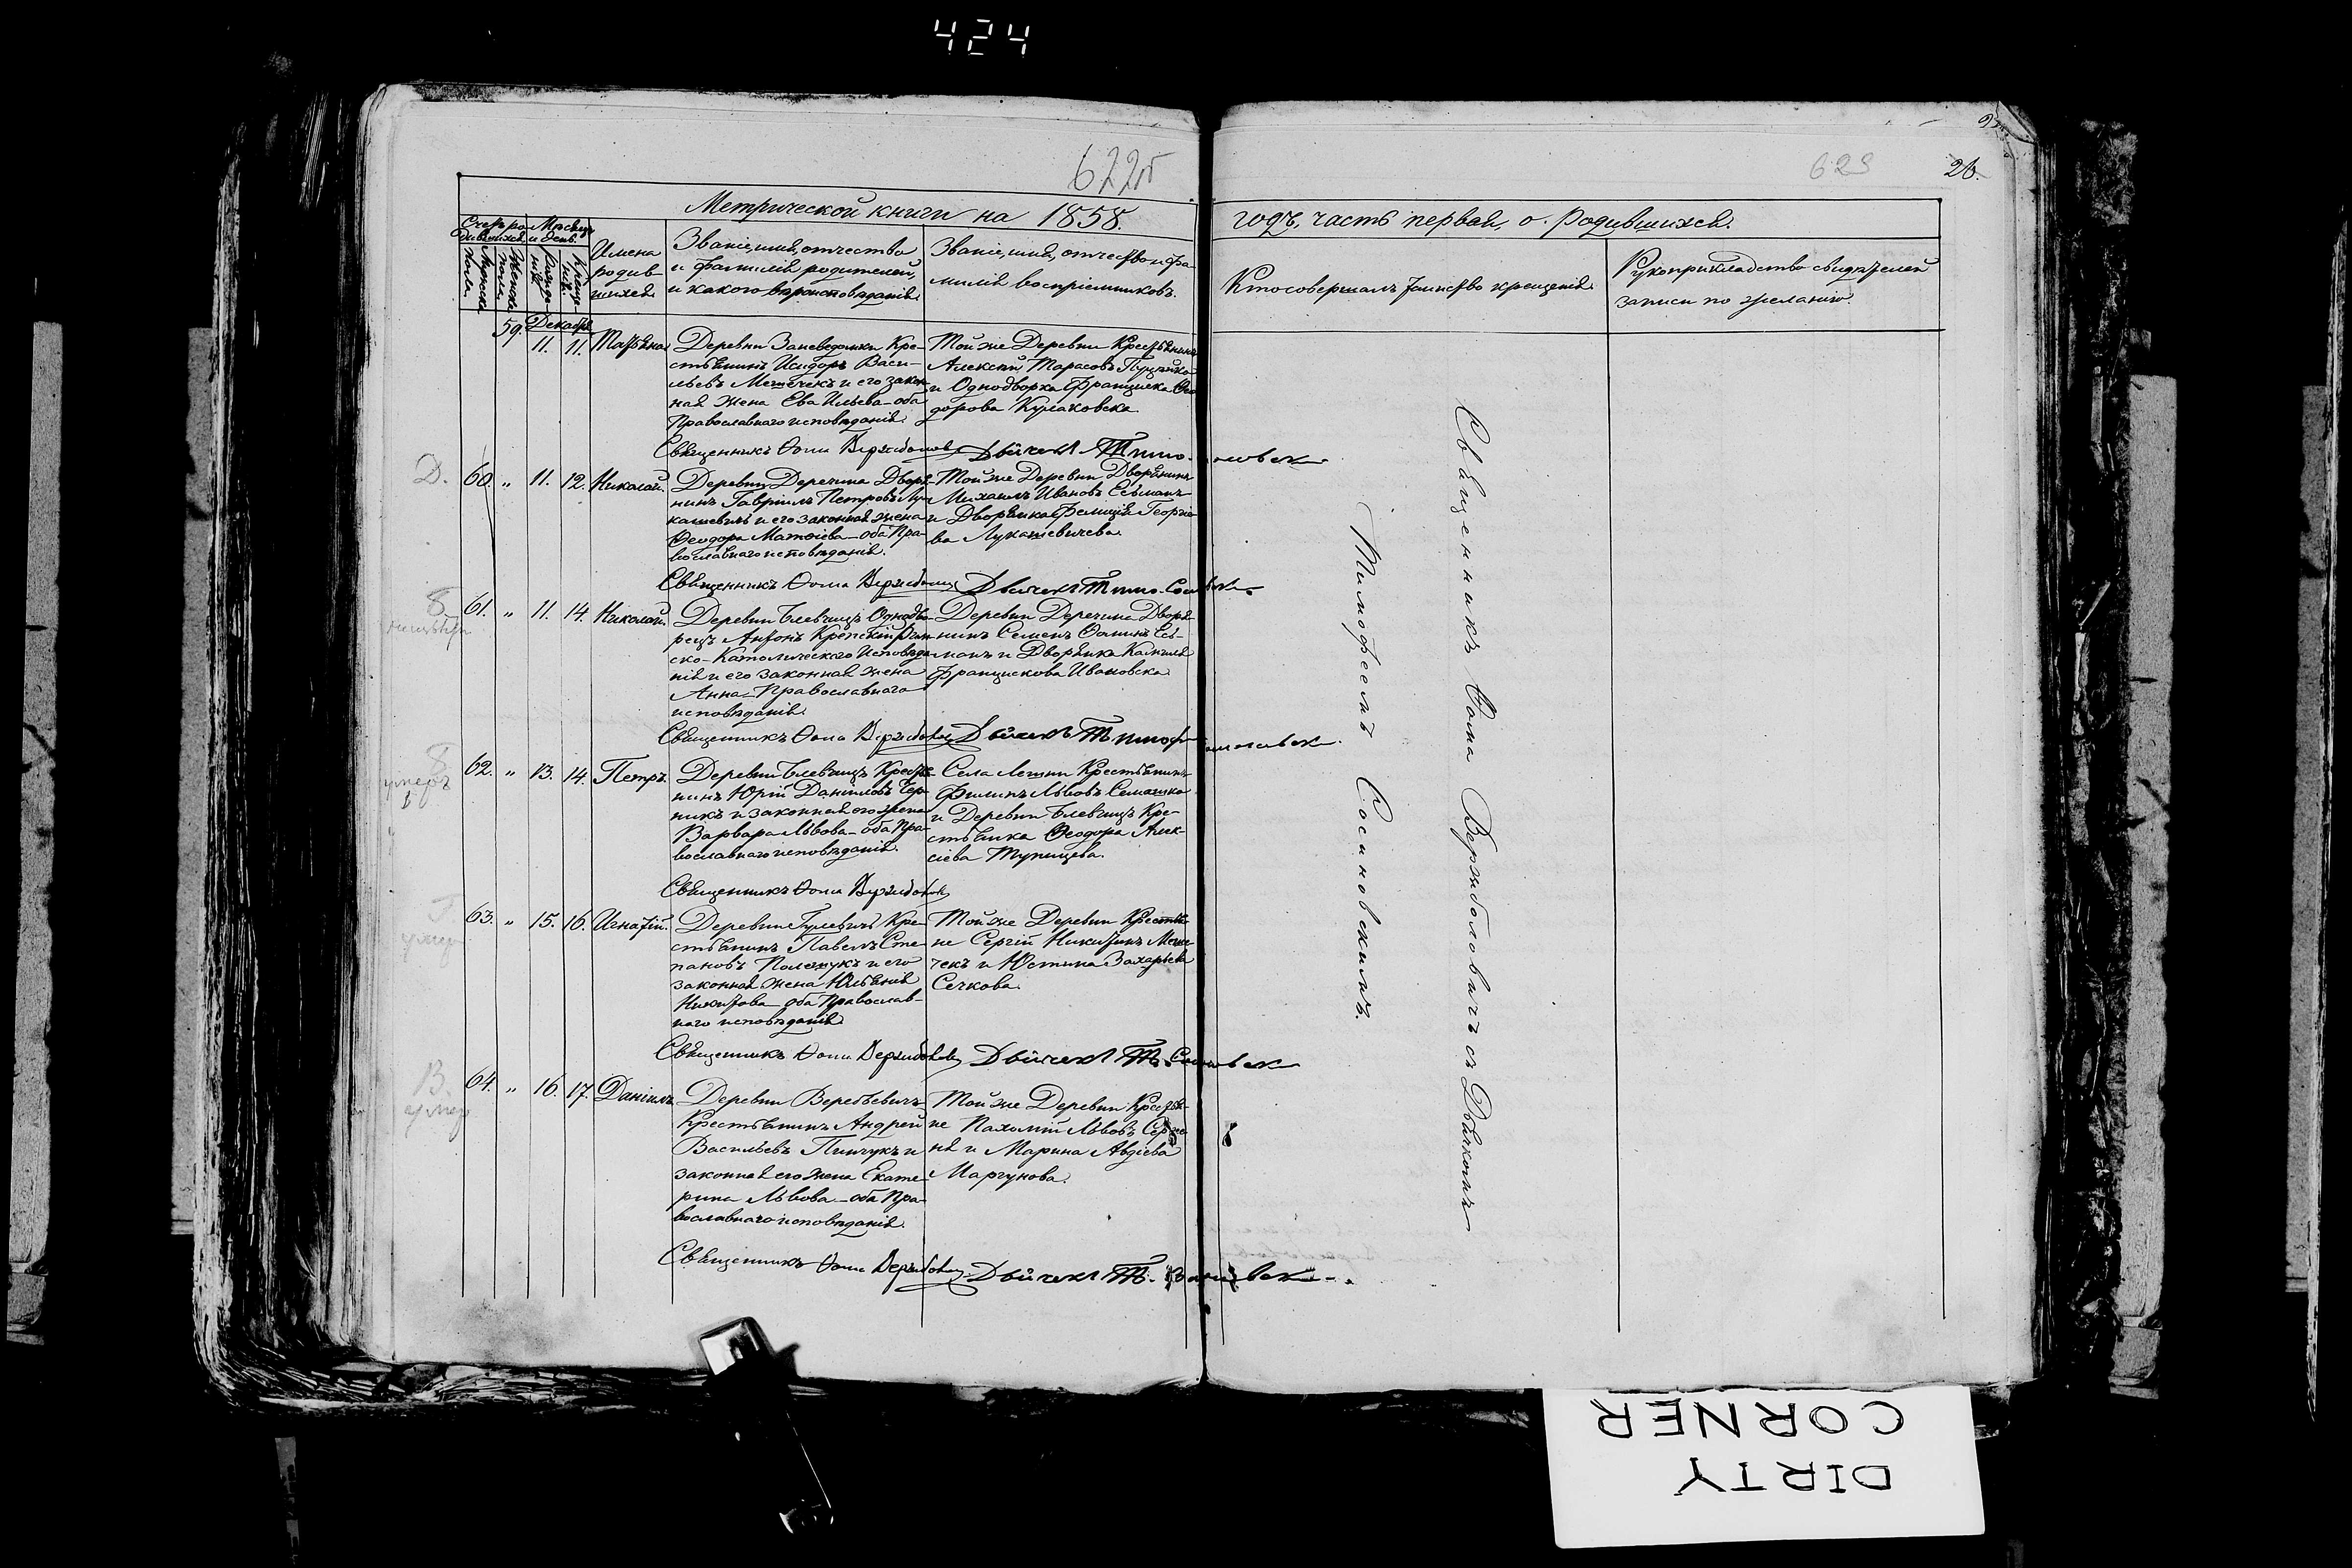 424
622об
623
26.
Метрической книги на 1858.
годъ, часть первая, о родившихся.
Счетъ родившихся.
Мужска пола.
Женска пола.
Мѣсяцъ и день.
Рожденія.
Крещенія.
Имена
родив-
шихся.
Званіе, имя, отчество
и фамилія родителей,
и какого вѣроисповѣданія.
Званіе, имя, отчество и фа-
милія воспріемниковъ.
Кто совершалъ таинство крещенія.
Рукоприкладство свидѣтелей
записи по желанію.
59. Декабрь
11. 11. Татьяна
Деревни Заневедомки Кре-
стьянинъ Исидоръ Васи-
льевъ Метечекъ и его закон-
ная жена Ева Ильева – оба
Православнаго исповѣданія.
Той же Деревни Крестьянинъ
Алексѣй Тарасовъ
и Однодворка Францишка Өео
дорова Кулаковска.
Священникъ Ѳома Вержболовичъ Дьячекъ Тимо.
Д. 60. „ 11. 12. Николай.
Деревни Деречина Дворя-
нинъ Гавріилъ Петровъ Лу-
кашевичъ и его законная жена
Ѳеодора Матѳіева – оба Пра-
вославнаго исповѣданія.
Той же Деревни Дворянинъ
Михаилъ Ивановъ Есьманъ
и Дворянка Фелиція Георгіе-
ва Лукашевичева.
Священникъ Ѳома Вержболовичъ Дьячекъ Тимо. Сосновск
61. „ 11. 14. Николай.
Деревни Блевчицъ Однодво-
рецъ Антонъ Крепскій Рим-
ско-Католическаго Исповѣда-
нія и его законная жена
Анна – Православнаго
исповѣданія.
Деревни Деречина Дворя-
нинъ Семенъ Ѳоминъ Есь-
манъ и Дворянка Камилія
Францискова Ивановска.
Священникъ Ѳома Вержболовичъ Дьячекъ Тимоф
умеръ
62. „ 13. 14. Петръ.
Деревни Блевчицъ Крестья-
нинъ Юрій Даніиловъ Чер-
никъ и законная его жена
Варвара Львова – оба Пра-
вославнаго исповѣданія.
Села Летни Крестьянинъ
Филипъ Львовъ Семашко
и Деревни Блевчицъ Кре-
стьянка Ѳеодора Алек-
сіева Тупицева.
Священникъ Ѳома Вержболовичъ
63. „ 15. 16. Игнатій.
Деревни Гулевичъ Кре-
стьянинъ Павелъ Сте-
пановъ Полещукъ и его
законная жена Юльянія
Никитова – оба Православ-
наго исповѣданія.
Той же Деревни Крестья-
не Сергій Никитинъ Мете-
чекъ и Юстина Захарьева
Сечкова.
Священникъ Ѳома Вержболовичъ Дьячекъ Т. Сосновск
В.
умер
64. „ 16. 17. Даніилъ
Деревни Веребьевичъ
Крестьянинъ Андрей
Васильевъ Пинчукъ и
законная его жена Екате-
рина Львова – оба Пра-
вославнаго исповѣданія.
Той же Деревни Крестья-
не Пахомій Львовъ
и Марина Авдіева
Маргунова.
Священникъ Ѳома Вержболовичъ Дьячекъ Т.
Священникъ Ѳома Вержболовичъ съ Дьячкомъ
Тимофеемъ Сосиновскимъ.
DIRTY
CORNER